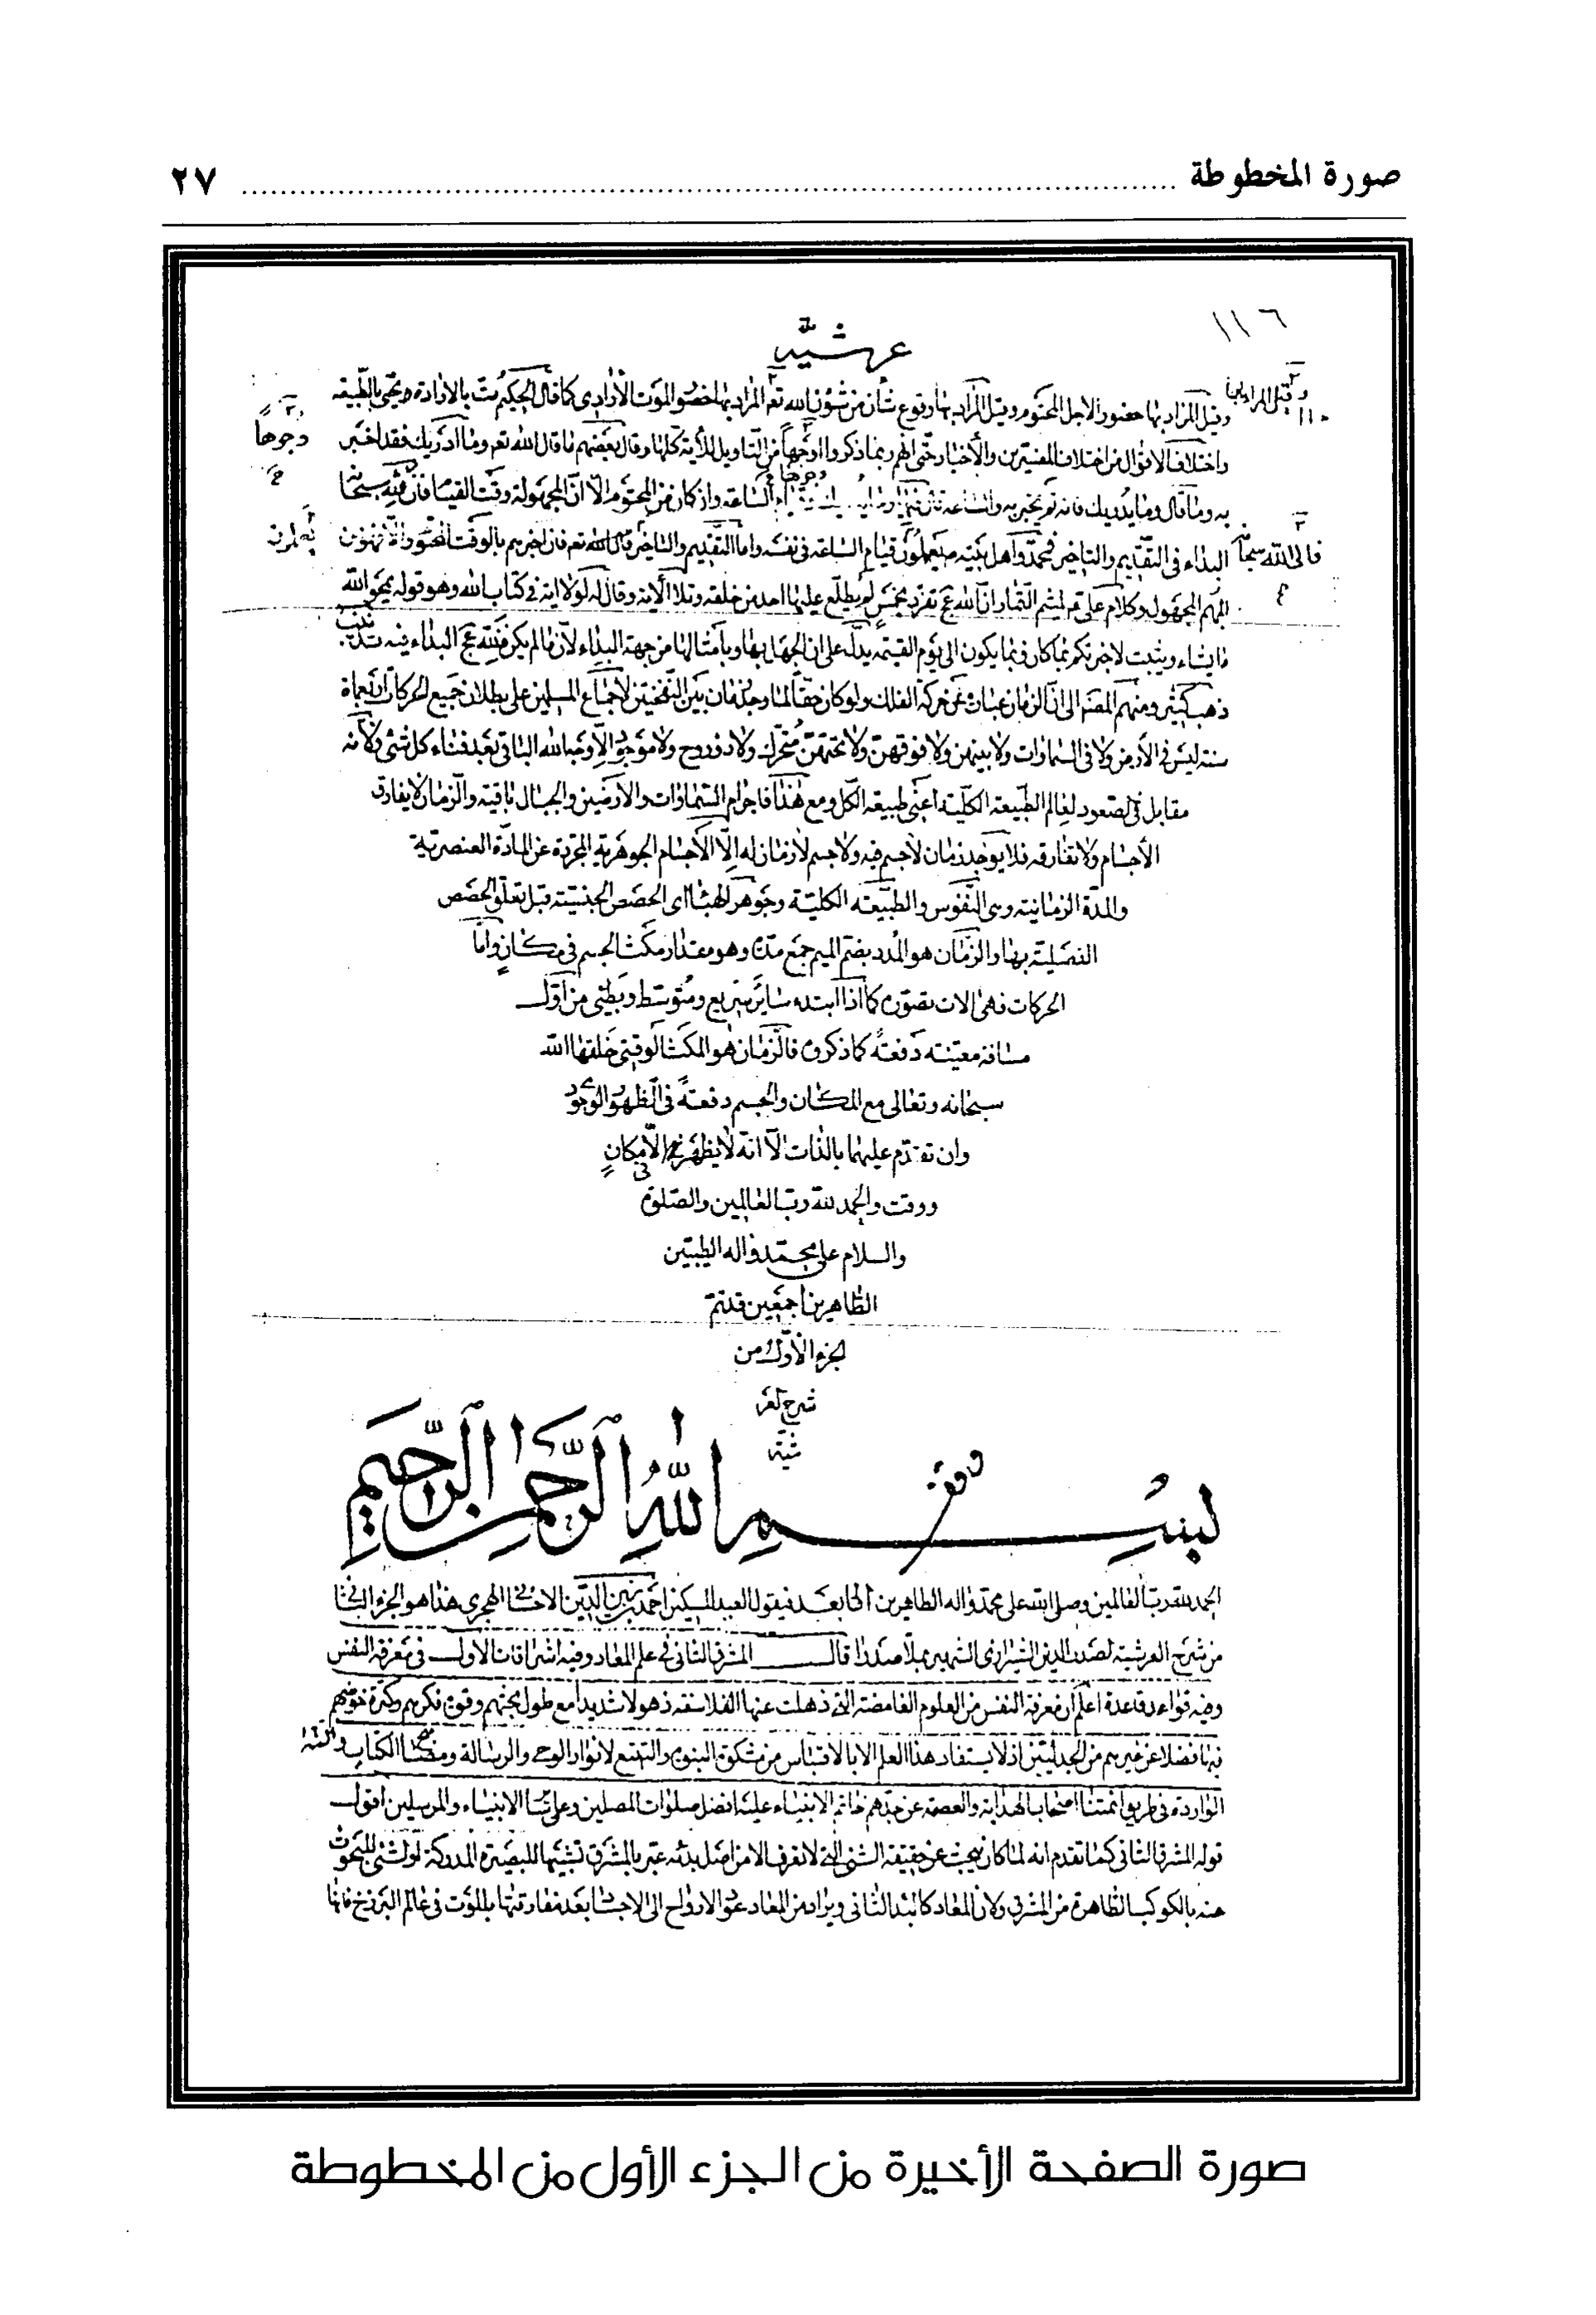 صورة المخطوطة ........ ٢٧
١١٦
عرشية
وقيل المراد بها حضور الاجل المحتوم وقيل المراد بها وقوع شأن من شؤون الله تع المراد بها خصوص الموت الأرادى كما قال الحكيم مت بالارادة تحيى بالطبيعه
واختلاف الاقوال من اختلاف المفسرين والأخبار حتى انهم ربما ذكروا اوجهاً من التاويل للأية كلها وقال بعضهم ما قال الله تع وما ادريك فقد اخبر
وجوهاً
به وما قال وما يدريك فانه لم يخبر به والساعة الساعة وان كان من المحتوم الّا انّ المجهولة وقت القيام فان لله سبحانه
البداء فى التقديم والتاخير فمحمد واهل بيته يعلمون قيام الساعة فى نفسه واما التقديم والتاخير قال الله تع فان اخبرهم بالوقت المحتوم والّا فهو من
المبهم المجهول وكلام على لميثم التمار ان الله عج تفرد بخمس لم يطلع عليها احد من خلقه وتلا الاية وقال لولا اية فى كتاب الله وهو قوله يمحو الله
ما يشاء ويثبت لاخبرتكم بما كان وبما يكون الى يوم القيمة يدل على ان الجهل بها وبأمثالها من جهة البداء لأن ما لم يكن فلله عج البداء فيه
ذهب كثير ومنهم المصـ الى ان الزمان عبارة عن حركة الفلك ولو كان حقاً لما وجد زمان بين النفختين لاجماع المسلمين على بطلان جميع الحركات
سنة ليس فى الأرض ولا فى السماوات ولا بينهن ولا فوقهن ولا تحتهن متحرك ولا ذو روح ولا موجود الّا وجه الله الباقى بعد فناء كل شئ ولأنه
مقابل فى الصعود لعالم الطبيعة الكلية اعنى طبيعة الكل ومع هذا فاجرام السماوات والارضين والجبال باقية والزمان لا يفارق
الأجسام ولا تفارقه فلا يوجد زمان لا جسم فيه ولا جسم لا زمان له الّا الأجسام الجوهرية المجردة عن المادة العنصرية
والمدة الزمانية وهى النفوس والطبيعة الكلية وجوهر الهباء اى الحصص الجنسية قبل تعلق الحصص
الفصلية بها والزمان هو المدد بضم الميم جمع مدة وهو مقدار مكث الجسم فى مكان واما
الحركات فهى الات تصوره كما اذا ابتدء سائر سريع ومتوسط وبطئ من اول
مسافة معينة دفعةً كما ذكروه فالزمان هو المكث الوقتى خلقها الله
سبحانه وتعالى مع المكان والجسم دفعةً فى الظهور والوجود
وان تقدم عليهما بالذات الّا انه لا يظهر الّا فى مكانٍ
ووقت والحمد لله رب العالمين والصلوة
والسلام على محمد واله الطيبين
الطاهرين اجمعين قد تم
الجزء الأول من
شرح العر
شية
بسم الله الرحمن الرحيم
الحمد لله رب العالمين وصلى الله على محمد واله الطاهرين اما بعد فيقول العبد المسكين احمد بن زين الدين الاحسائى الهجرى هذا هو الجزء الثانى
من شرح العرشية لصدر الدين الشيرازى الشهير بملا صدرا قال المشرق الثانى فى علم المعاد وفيه اشراقات الاول فى معرفة النفس
وفيه قواعد قاعدة اعلم ان معرفة النفس من العلوم الغامضة التى ذهلت عنها الفلاسفه ذهولا شديدا مع طول بحثهم وقوة فكرهم وكثرة خوضهم
فيها فضلا عن غيرهم من الجدليين اذ لا يستفاد هذا العلم الا بالاقتباس من مشكوة النبوة والتتبع لانوار الوحى والرسالة ومصابيح الكتاب والسنة
الواردة فى طريق ائمتنا اصحاب الهداية والعصمة عن جدهم خاتم الانبياء عليه افضل صلوات المصلين وعلى سائر الانبياء والمرسلين اقول
قوله المشرق الثانى كما تقدم انه لما كان يبحث عن حقيقة الشئ التى لا تعرف الا من اصل بدئه عبر بالمشرق تشبيها للبصيرة المدركة المبحوث
عنه بالكوكب الظاهرة من المشرق ولان المعاد كالمبدء الثانى ويراد من المعاد عود الارواح الى الاجساد بعد مفارقتها بالموت فى عالم البرزخ فانها
صورة الصفحة الأخيرة من الجزء الأول من المخطوطة